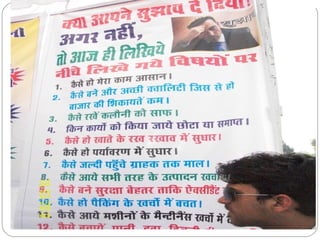 क्या आपने सुझाव दे दिया?
अगर नहीं,
तो आज ही लिखिये
नीचे लिखे गये विषयों पर
1. कैसे हो मेरा काम आसान।
2. कैसे बने और अच्छी क्वालिटी जिस से हो
बाजार की शिकायतें कम।
3. कैसे रखें कलौनी को साफ।
4. किन कार्यों को किया जाये छोटा या समाप्त।
5. कैसे हो खाते के रख रखाव में सुधार।
6. कैसे हो पर्यावरण में सुधार।
7. कैसे जल्दी पहुँचे ग्राहक तक माल।
8. कैसे आये सभी तरह के उत्पादन
9. कैसे बने सुरक्षा बेहतर ताकि ऐक्सीडेंट
10. कैसे हो पैकिंग के खर्चों में बचत।
11. कैसे आये मशीनों के मैन्टीनैंस खर्चों में
12. कैसे बचायें पानी, हवा,